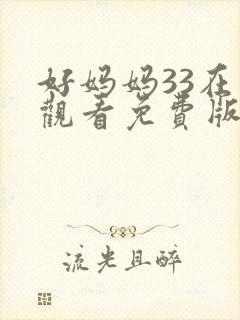 好妈妈33在
觀看免費版
流光且醉